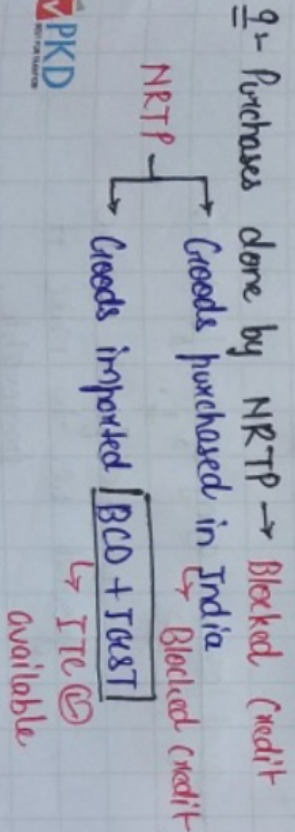 9- Purchases done by NRTP → Blocked Credit
NRTP → Goods purchased in India
↳ Blocked Credit
→ Goods imported BCD + IGST
↳ ITC available
PKD